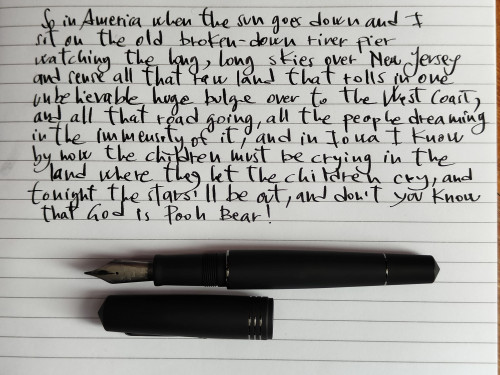 So in America when the sun goes down and I
sit on the old broken-down river pier
watching the long, long skies over New Jersey
and sense all that raw land that rolls in one
unbelievable huge bulge over to the West Coast,
and all that road going, all the people dreaming
in the immensity of it, and in Iowa I know
by now the children must be crying in the
land where they let the children cry, and
tonight the stars'll be out, and don't you know
that God is Pooh Bear!